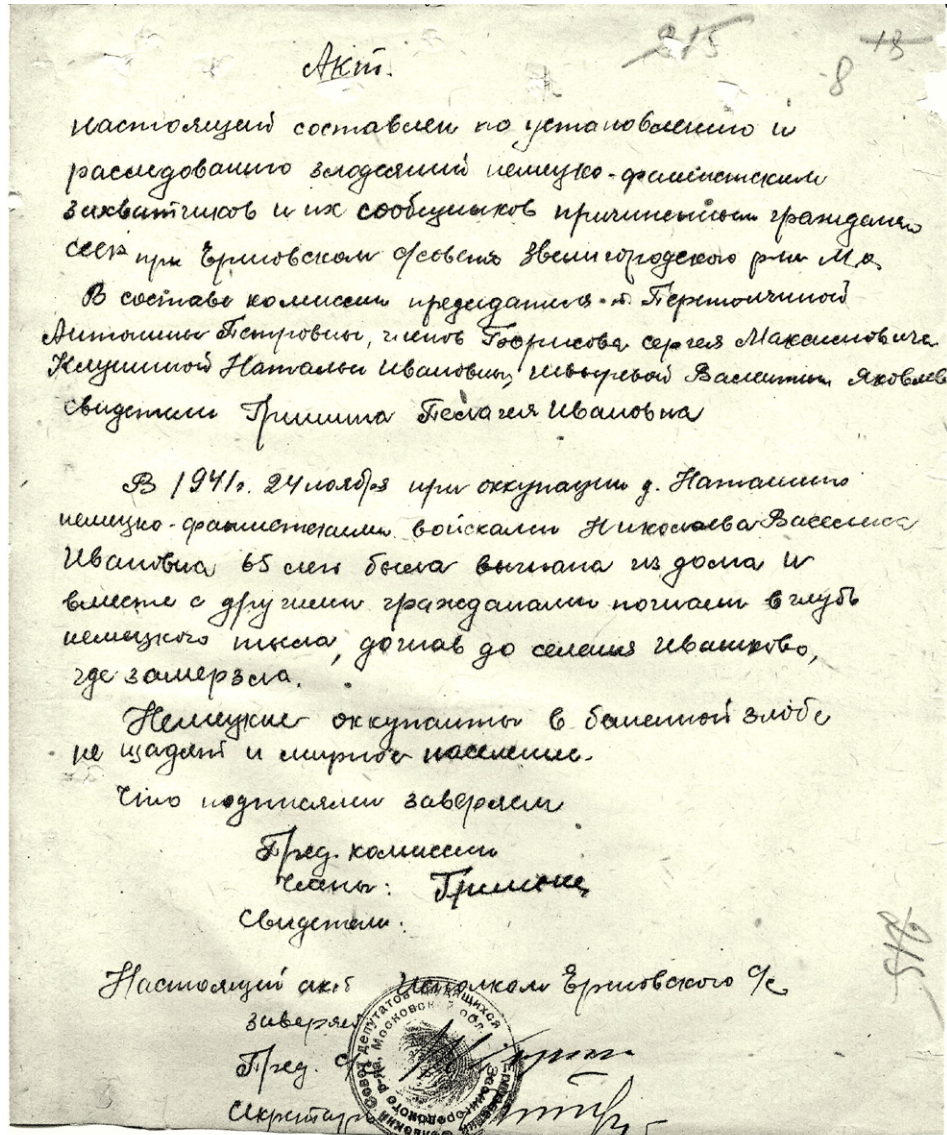 215 13
8
Акт.
настоящий составлен по установлению и
расследованию злодеяний немецко-фашистских
захватчиков и их сообщников причиненных граждан
при Ершовском с/совета Звенигородского р-на М.о.
В составе комиссии председателя т. Перепончиной
Антонины Петровны, членов Борисова Сергея Максимовича
Натальи Ивановны, Валентины Яковлев
свидетели Гришина Пелагея Ивановна
В 1941г. 24 ноября при оккупации д. Наташино
немецко-фашистскими войсками Николаева Василиса
Ивановна 65 лет была выгнана из дома и
вместе с другими гражданами погнали в глубь
немецкого тыла, догнав до селения Ивашково,
где замерзла.
Немецкие оккупанты в бешенной злобе
не щадят и мирное население.
Что подписями заверяем
Пред. комиссии
Члены: Гришина
Свидетели:
215
Настоящий акт Исполком Ершовского с/с
заверяет
Пред. с/с
Секретарь